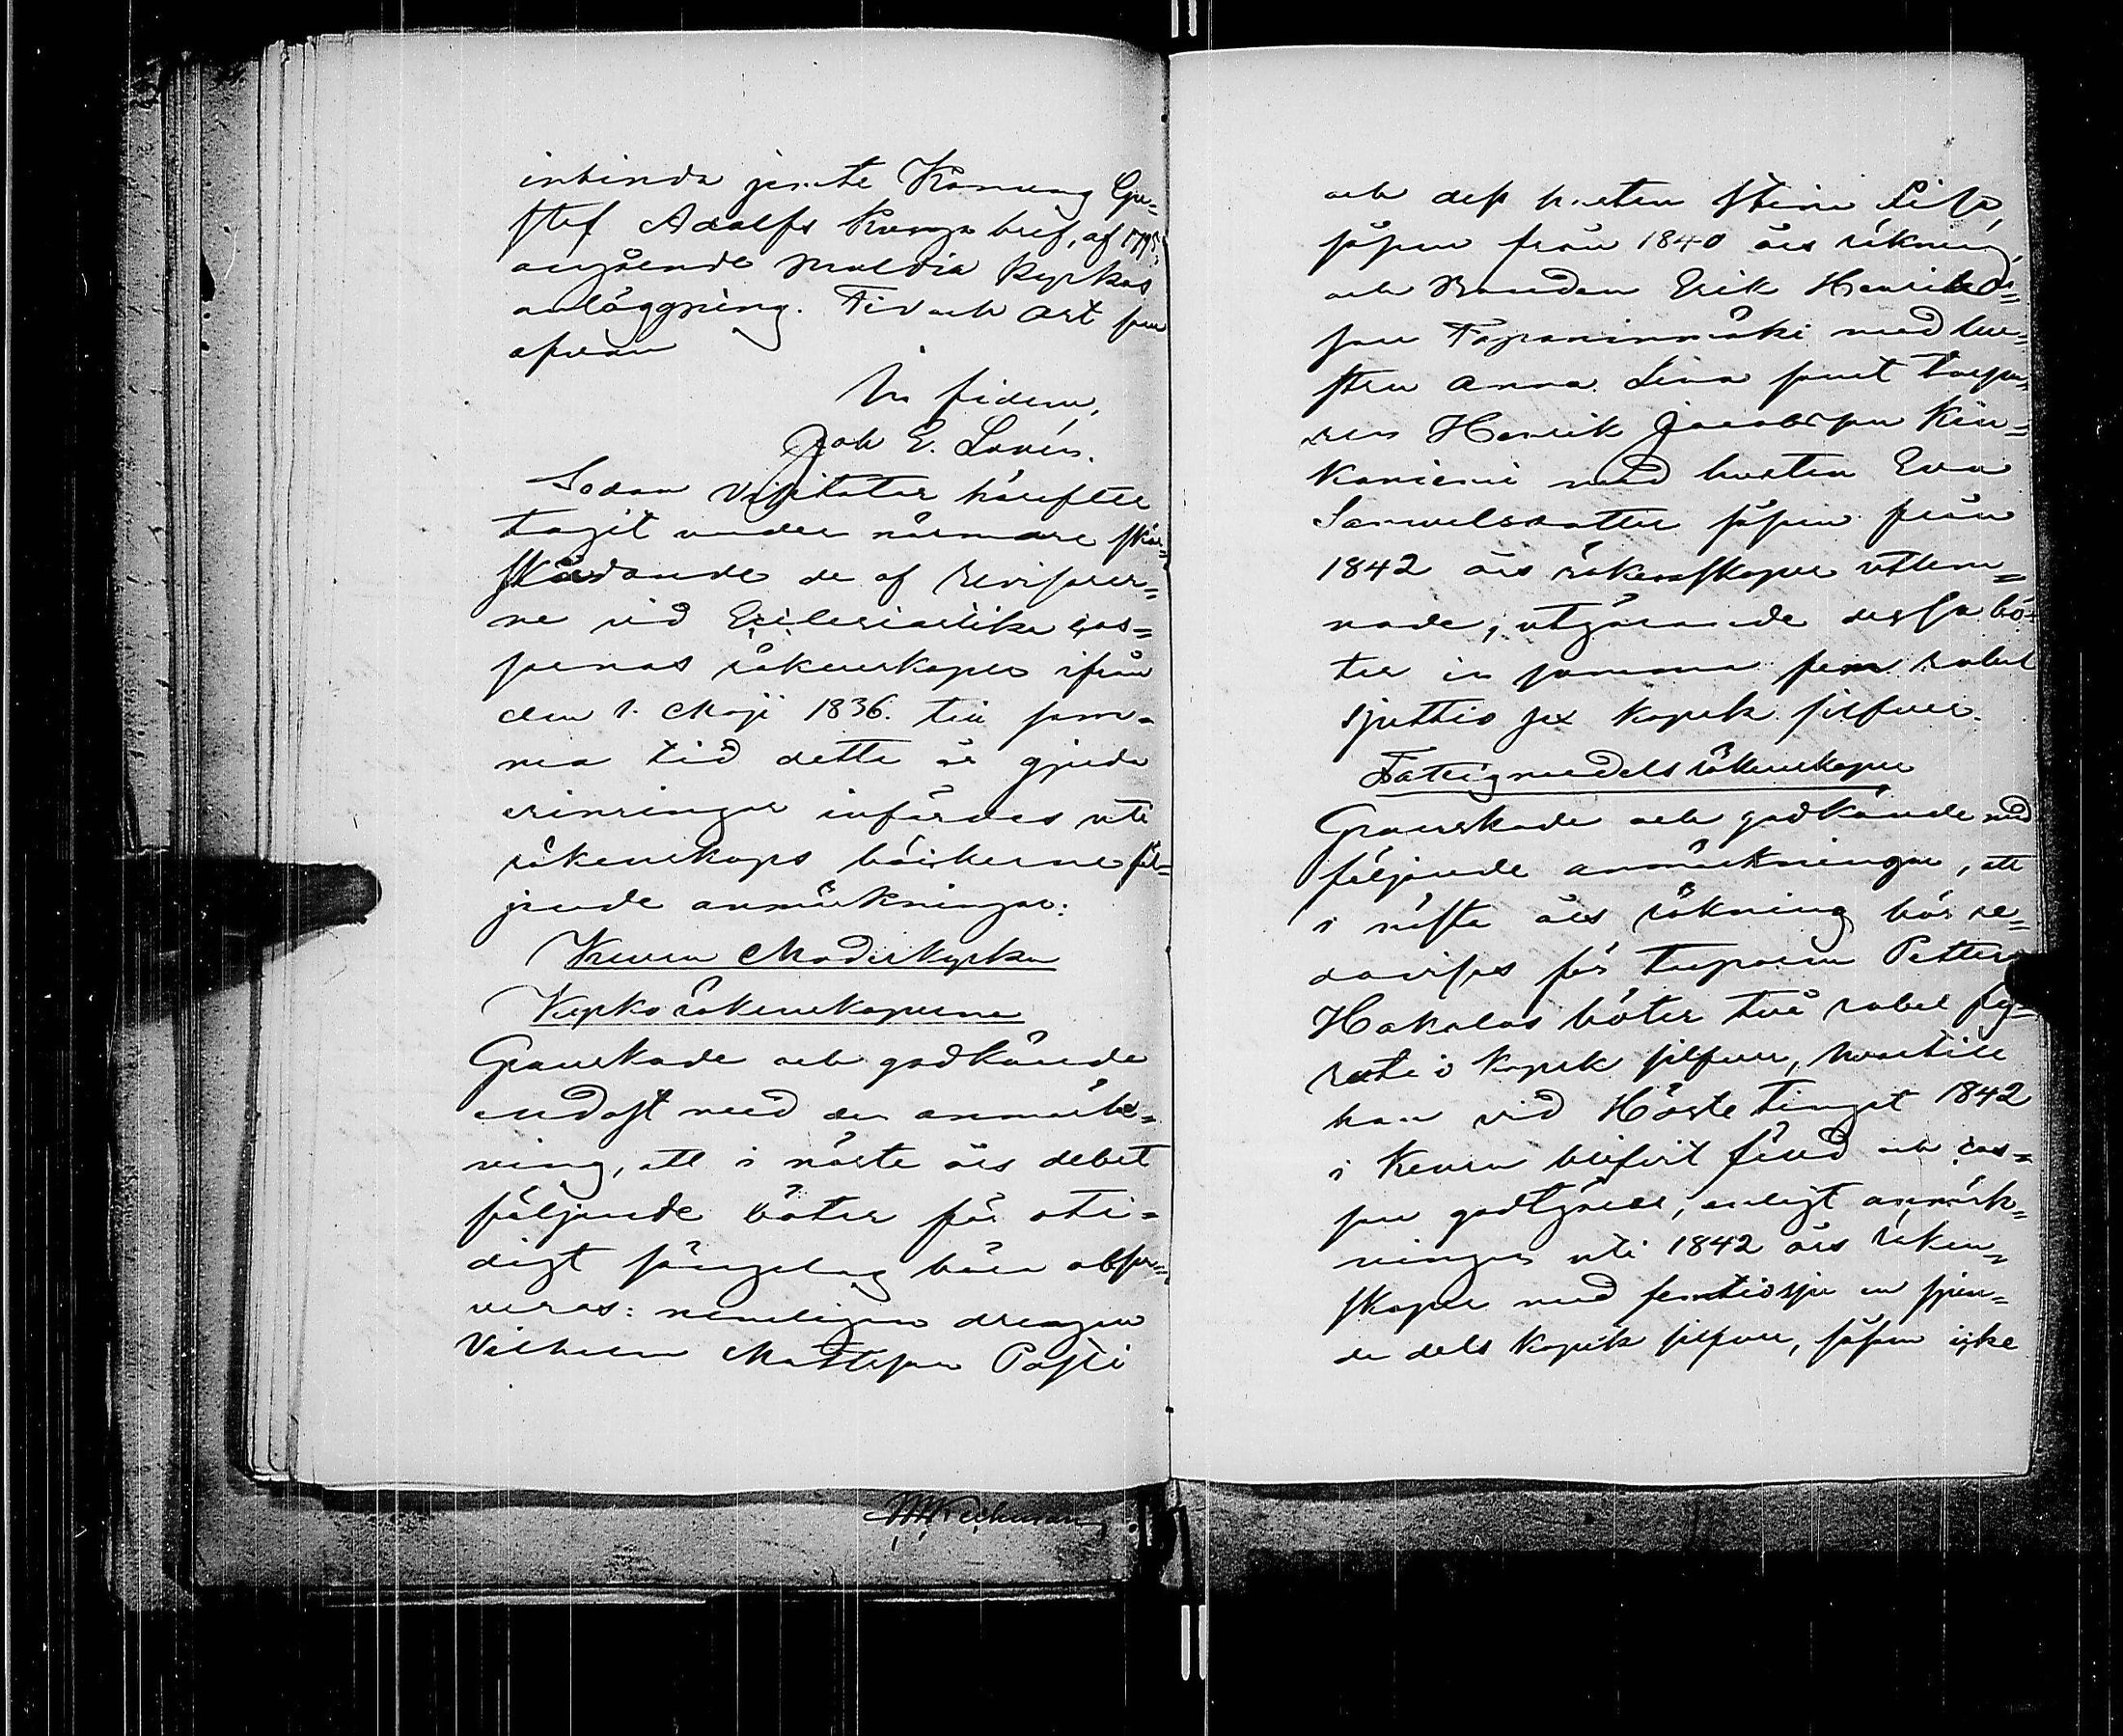 inbinda jemte Konung Gu=
staf Adolfs Kunga bref, af 1795,
angående Multia Kyrkas
anläggning. Tid och Ort som
ofvan
In fidem,
Joh E. Lovén.
Sedan Visitator härefter
tagit under närmare skär=
skådande de af Revisorer=
ne vid Ecclesiastike cas=
sornas räkenskaper ifrån
den 1. Maji 1836. till sam=
ma tid detta år gjorda
erinringar infördes uti
räkenskaps böckerne föl=
jende anmärkningar:
Keuru Moderkyrka
Kyrko räkenskaperne
Granskade och godkände
endast med den anmärk=
ning, att i nästa års debet
följande böter för oti=
digt sängelag böra obser=
veras: nemligen drengen
Vilhelm Mattsson Pohti
och dess hustru Stina Lisa,
såsom från 1840 års räkning,
och Bonden Erik Henriks=
son Tapaninmäki med hu=
stru Anna Lena samt torpa=
ren Henrik Jacobsson Kin=
kaniemi med hustru Eva
Samuelsdotter såsom från
1842 års räkenskaper uttem=
nade, utgörande dessa bö=
ter in summa fem rubel
sjuttio sex kopek silfver.
Fattigmedels räkenskaper
Granskade och godkände med
följande anmärkningar, att
i nästa års räkning bör re=
dovisas för torparen Petter
Hakalas böter två rubel fy=
ratio kopek silfver, hvartill
han vid Höste tinget 1842
i Keuru blifvit fäld och cas=
san godtgöres, enligt anmärk=
ningen uti 1842 års räken=
skaper med femtiosju en sjun=
de dels kopek silfver, såsom icke